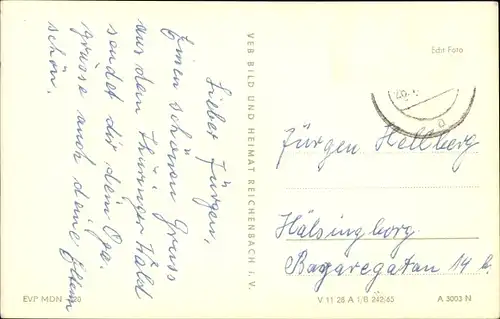 Lieber Jürgen,
Einen schönen Gruss
aus dem Thüringer Wald
sendet dir dein Opa.
grüsse auch deine Eltern
schön.
VEB BILD UND HEIMAT REICHENBACH i. V.
Echt Foto
Jürgen Hellberg
Hälsingborg
Bagaregatan 14
EVP MDN
V 11 28 A 1/B 242/65
A 3003 N